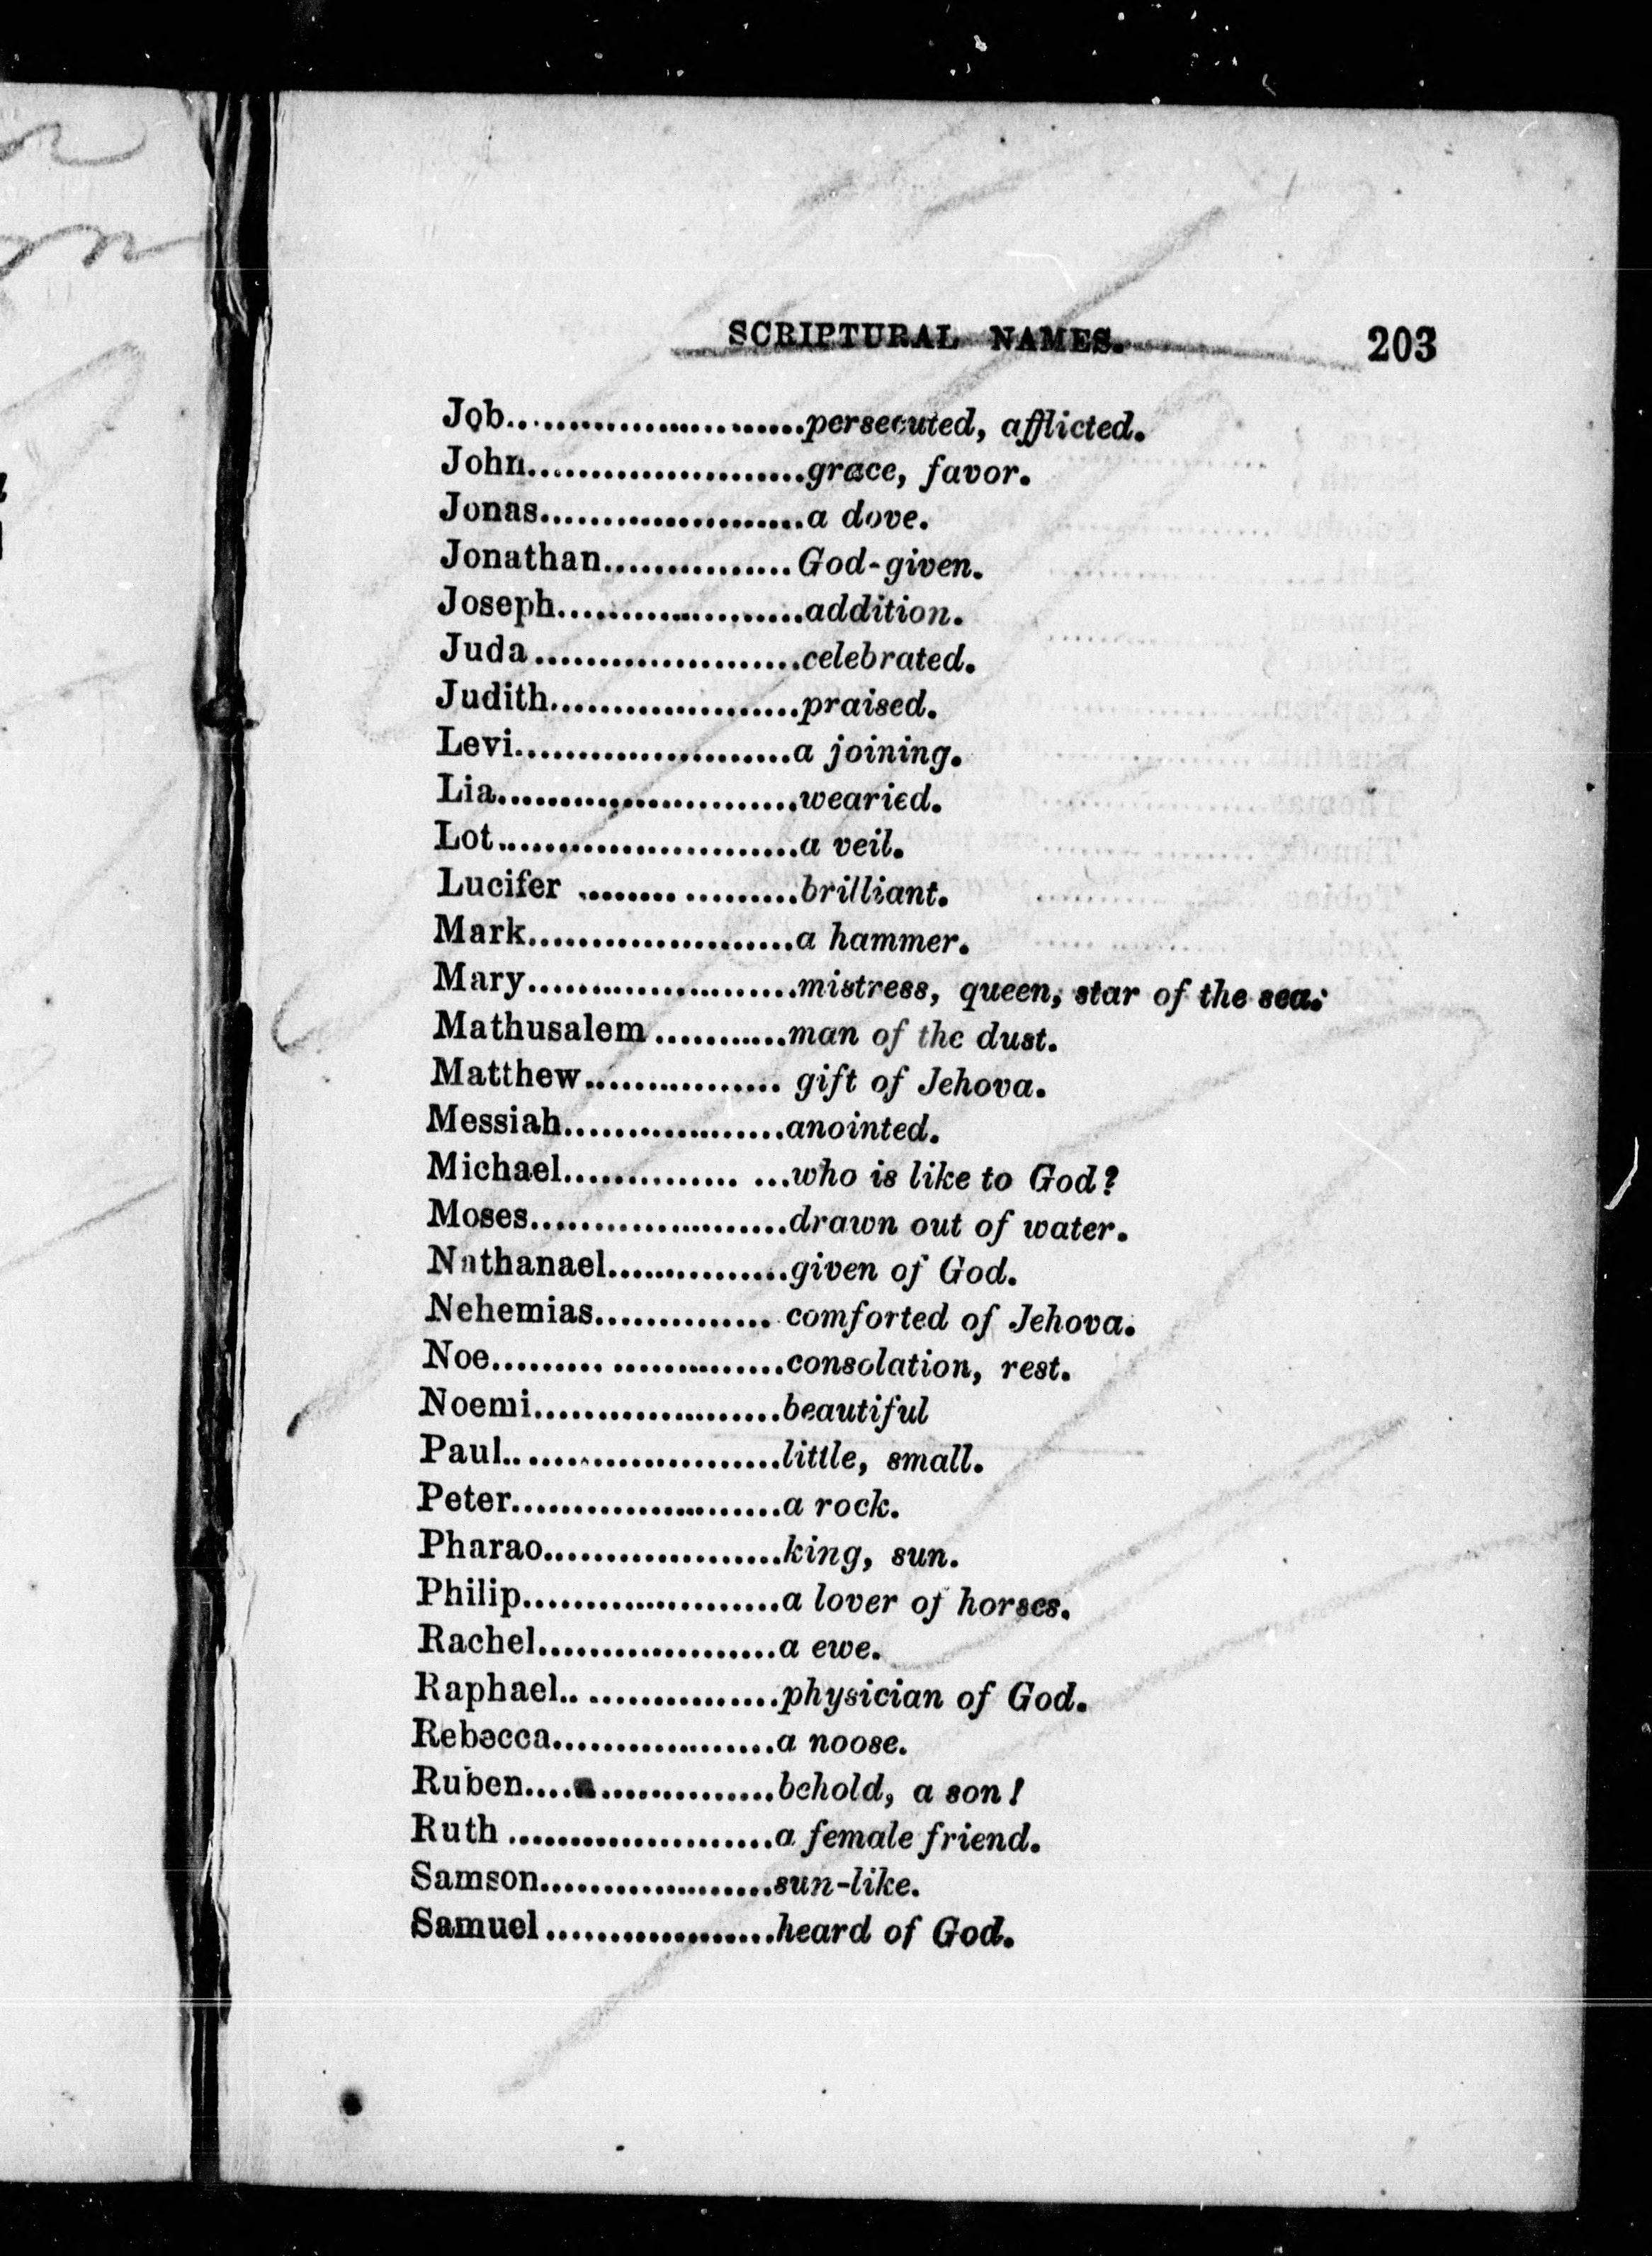 SCRIPTURAL NAMES. 203
Job........................persecuted, afflicted.
John.......................grace, favor.
Jonas......................a dove.
Jonathan...............God-given.
Joseph....................addition.
Juda......................celebrated.
Judith....................praised.
Levi......................a joining.
Lia........................wearied.
Lot........................a veil.
Lucifer .................brilliant.
Mark......................a hammer.
Mary......................mistress, queen, star of the sea.
Mathusalem...........man of the dust.
Matthew................ gift of Jehova.
Messiah..................anointed.
Michael.............. ...who is like to God?
Moses.....................drawn out of water.
Nathanael...............given of God.
Nehemias.............. comforted of Jehova.
Noe......... ..............consolation, rest.
Noemi....................beautiful
Paul.......................little, small.
Peter......................a rock.
Pharao...................king, sun.
Philip.....................a lover of horses.
Rachel...................a ewe.
Raphael.. ...............physician of God.
Rebecca..................a noose.
Ruben....................behold, a son!
Ruth .....................a female friend.
Samson...................sun-like.
Samuel...................heard of God.